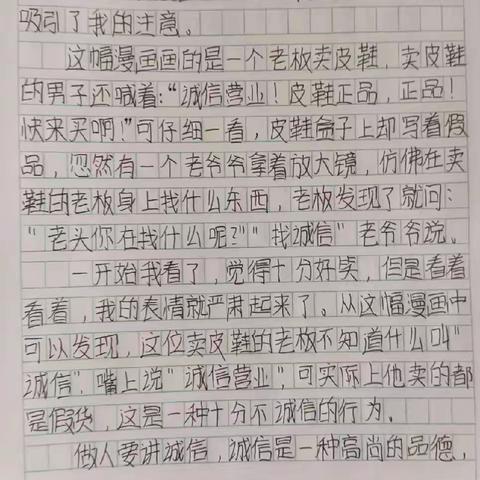 吸引了我的注意。
这幅漫画画的是一个老板卖皮鞋，卖皮鞋
的男子还喊着：“诚信营业！皮鞋正品，正品！
快来买啊！”可仔细一看，皮鞋盒子上却写着假
品，忽然有一个老爷爷拿着放大镜，仿佛在卖
鞋的老板身上找什么东西，老板发现了就问：
“老头你在找什么呢？”“找诚信”老爷爷说。
一开始我看了，觉得十分好笑，但是看着
看着，我的表情就严肃起来了。从这幅漫画中
可以发现，这位卖皮鞋的老板不知道什么叫“
诚信”，嘴上说“诚信营业”，可实际上他卖的都
是假货，这是一种十分不诚信的行为。
做人要讲诚信，诚信是一种高尚的品德，